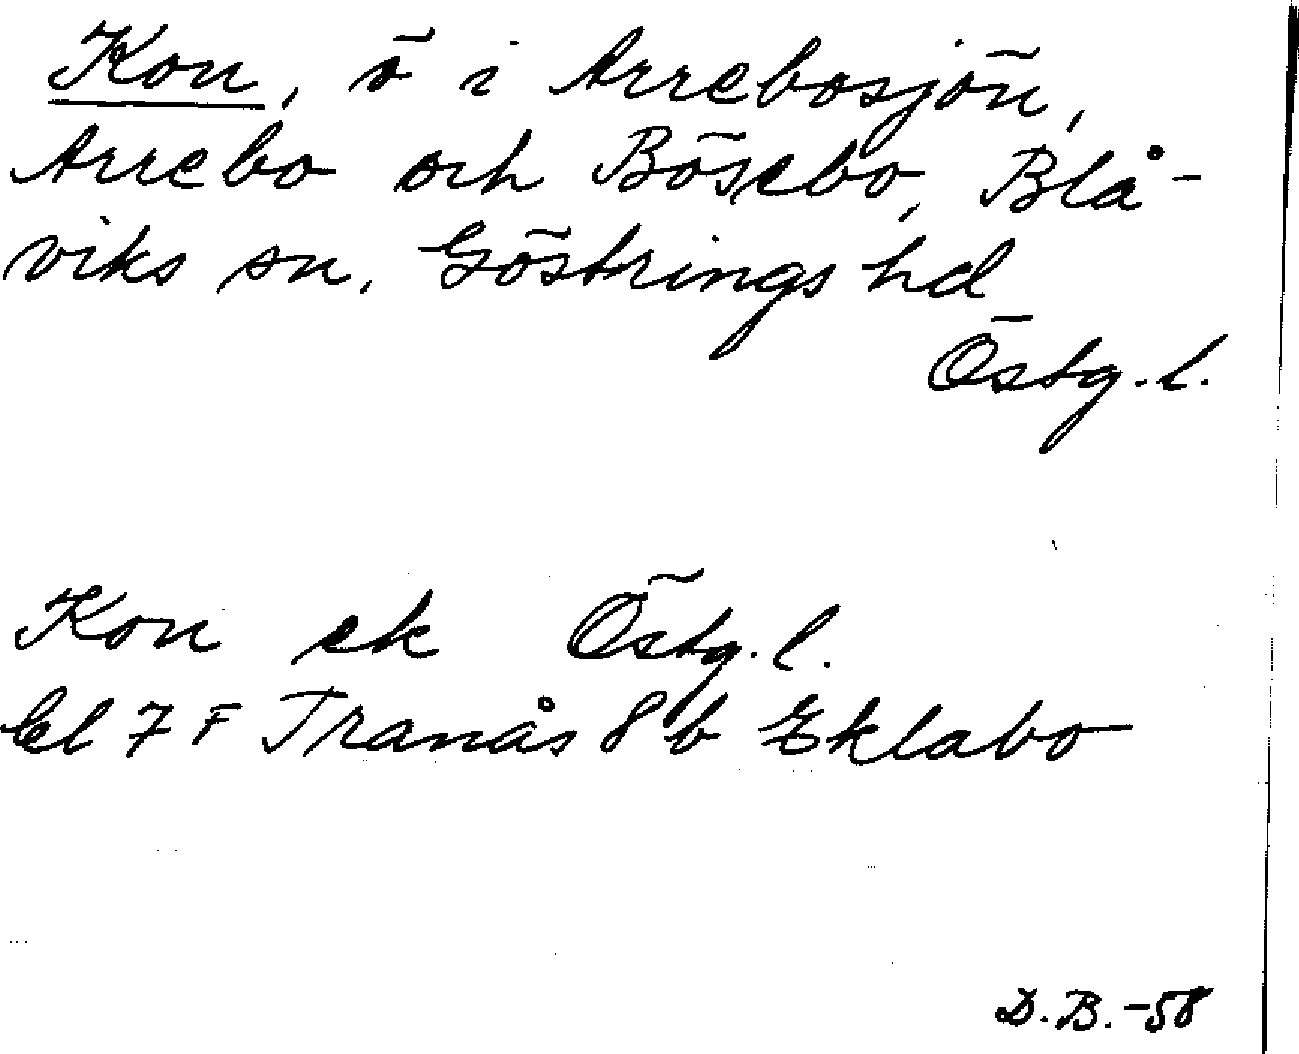 Kon, ö i Arrebosjön,
Arrebo och Bösebo, Blå-
viks sn, Göstrings hd
Östg. l.
Kon ek Östg. l.
bl 7 F Tranås 8 b Eklabo
D. B. -58